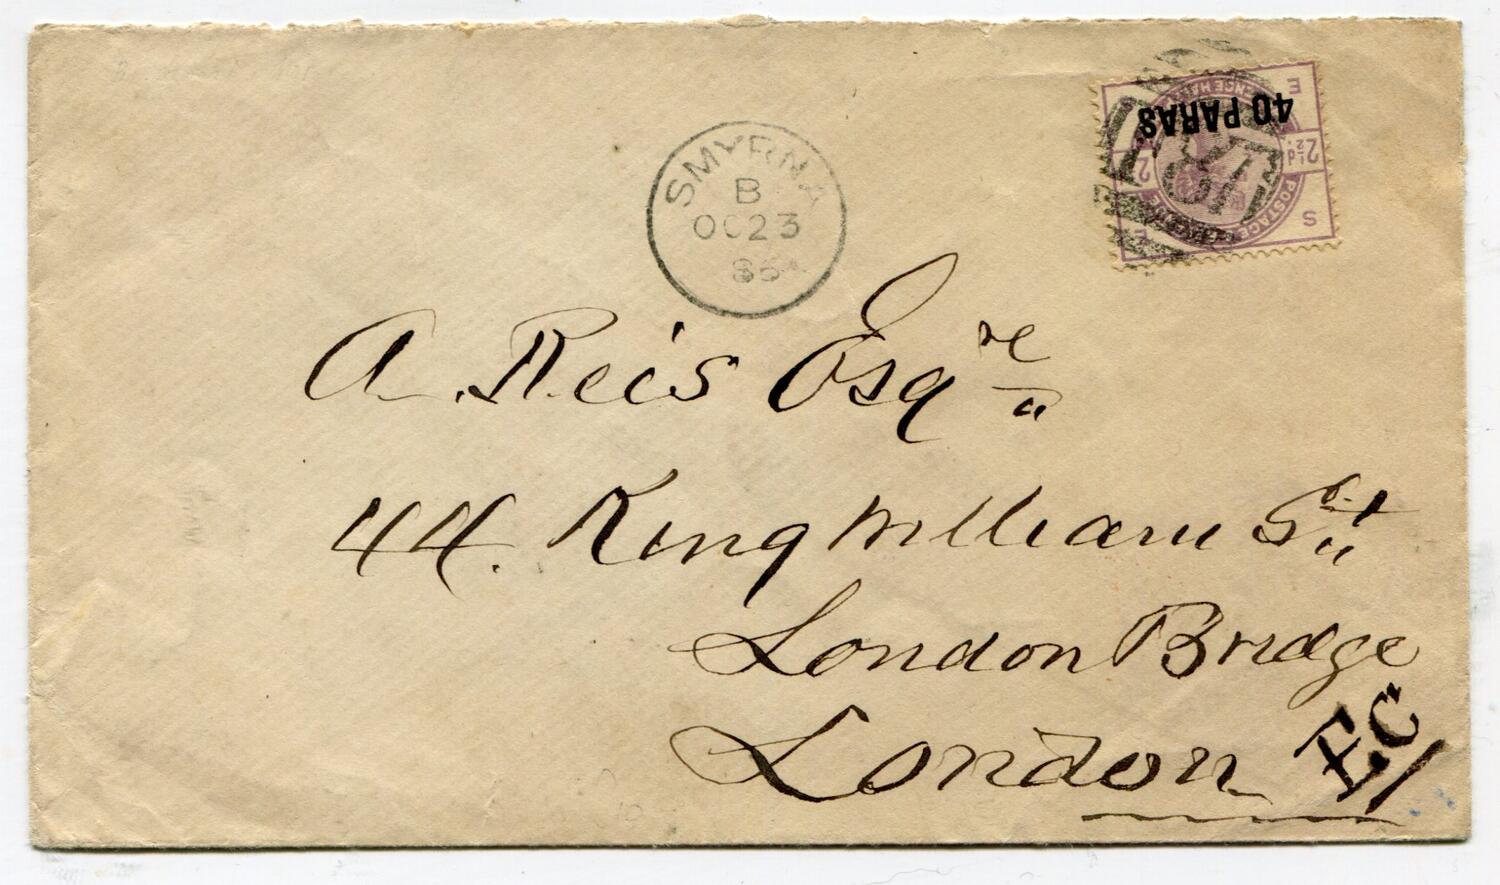 SMYRNA
B
OC 23
86
40 PARAS
POSTAGE
2½d
S
E
A. Reis Esqre
44. King William St
London Bridge
London EC